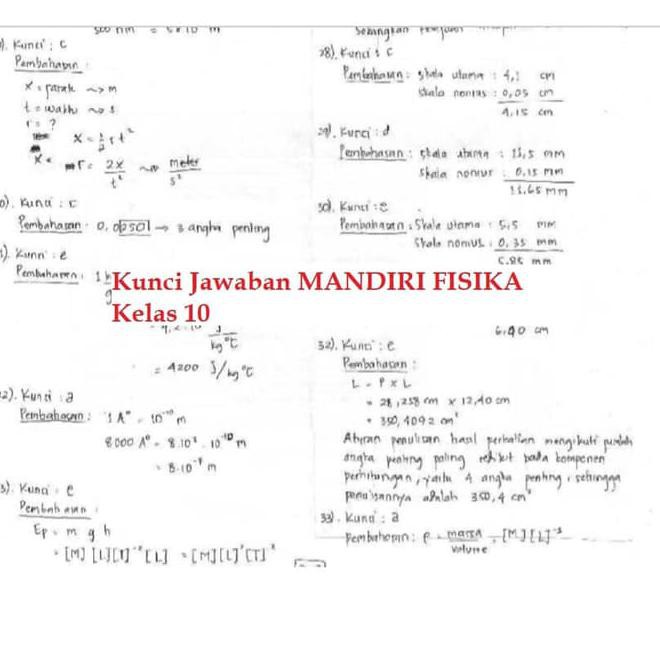 500 nm = 5 x 10 m
). Kunci : c
Pembahasan :
x = jarak ~> m
t = waktu ~> s
r = ?
x = 1/2 r t²
r = 2x/t² ~> meter/s²
0). Kunci : c
Pembahasan : 0,02501 → 3 angka penting
). Kunci : e
Pembahasan : 1
J/kg°C
= 4200 J/kg°C
2). Kunci : a
Pembahasan : 1 A° = 10⁻¹⁰ m
8000 A° = 8.10³ . 10⁻¹⁰ m
= 8.10⁻⁷ m
3). Kunci : e
Pembahasan :
Ep = m g h
= [M] [L][T]⁻² [L] = [M][L]²[T]⁻²
28). Kunci : c
Pembahasan : skala utama : 4,1 cm
skala nonius : 0,05 cm
4,15 cm
29). Kunci : d
Pembahasan : skala utama : 11,5 mm
skala nonius : 0,15 mm
11,65 mm
30). Kunci : e
Pembahasan : Skala utama : 5,5 mm
Skala nonius : 0,35 mm
5,85 mm
Kunci Jawaban MANDIRI FISIKA
Kelas 10
6,40 cm
32). Kunci : e
Pembahasan :
L = P x L
= 28,258 cm x 12,40 cm
= 350,4092 cm²
Aturan penulisan hasil perkalian mengikuti jumlah
angka penting paling sedikit pada komponen
perhitungan, yaitu 4 angka penting, sehingga
penulisannya adalah 350,4 cm²
33). Kunci : a
Pembahasan : ρ = massa/volume = [M][L]⁻³